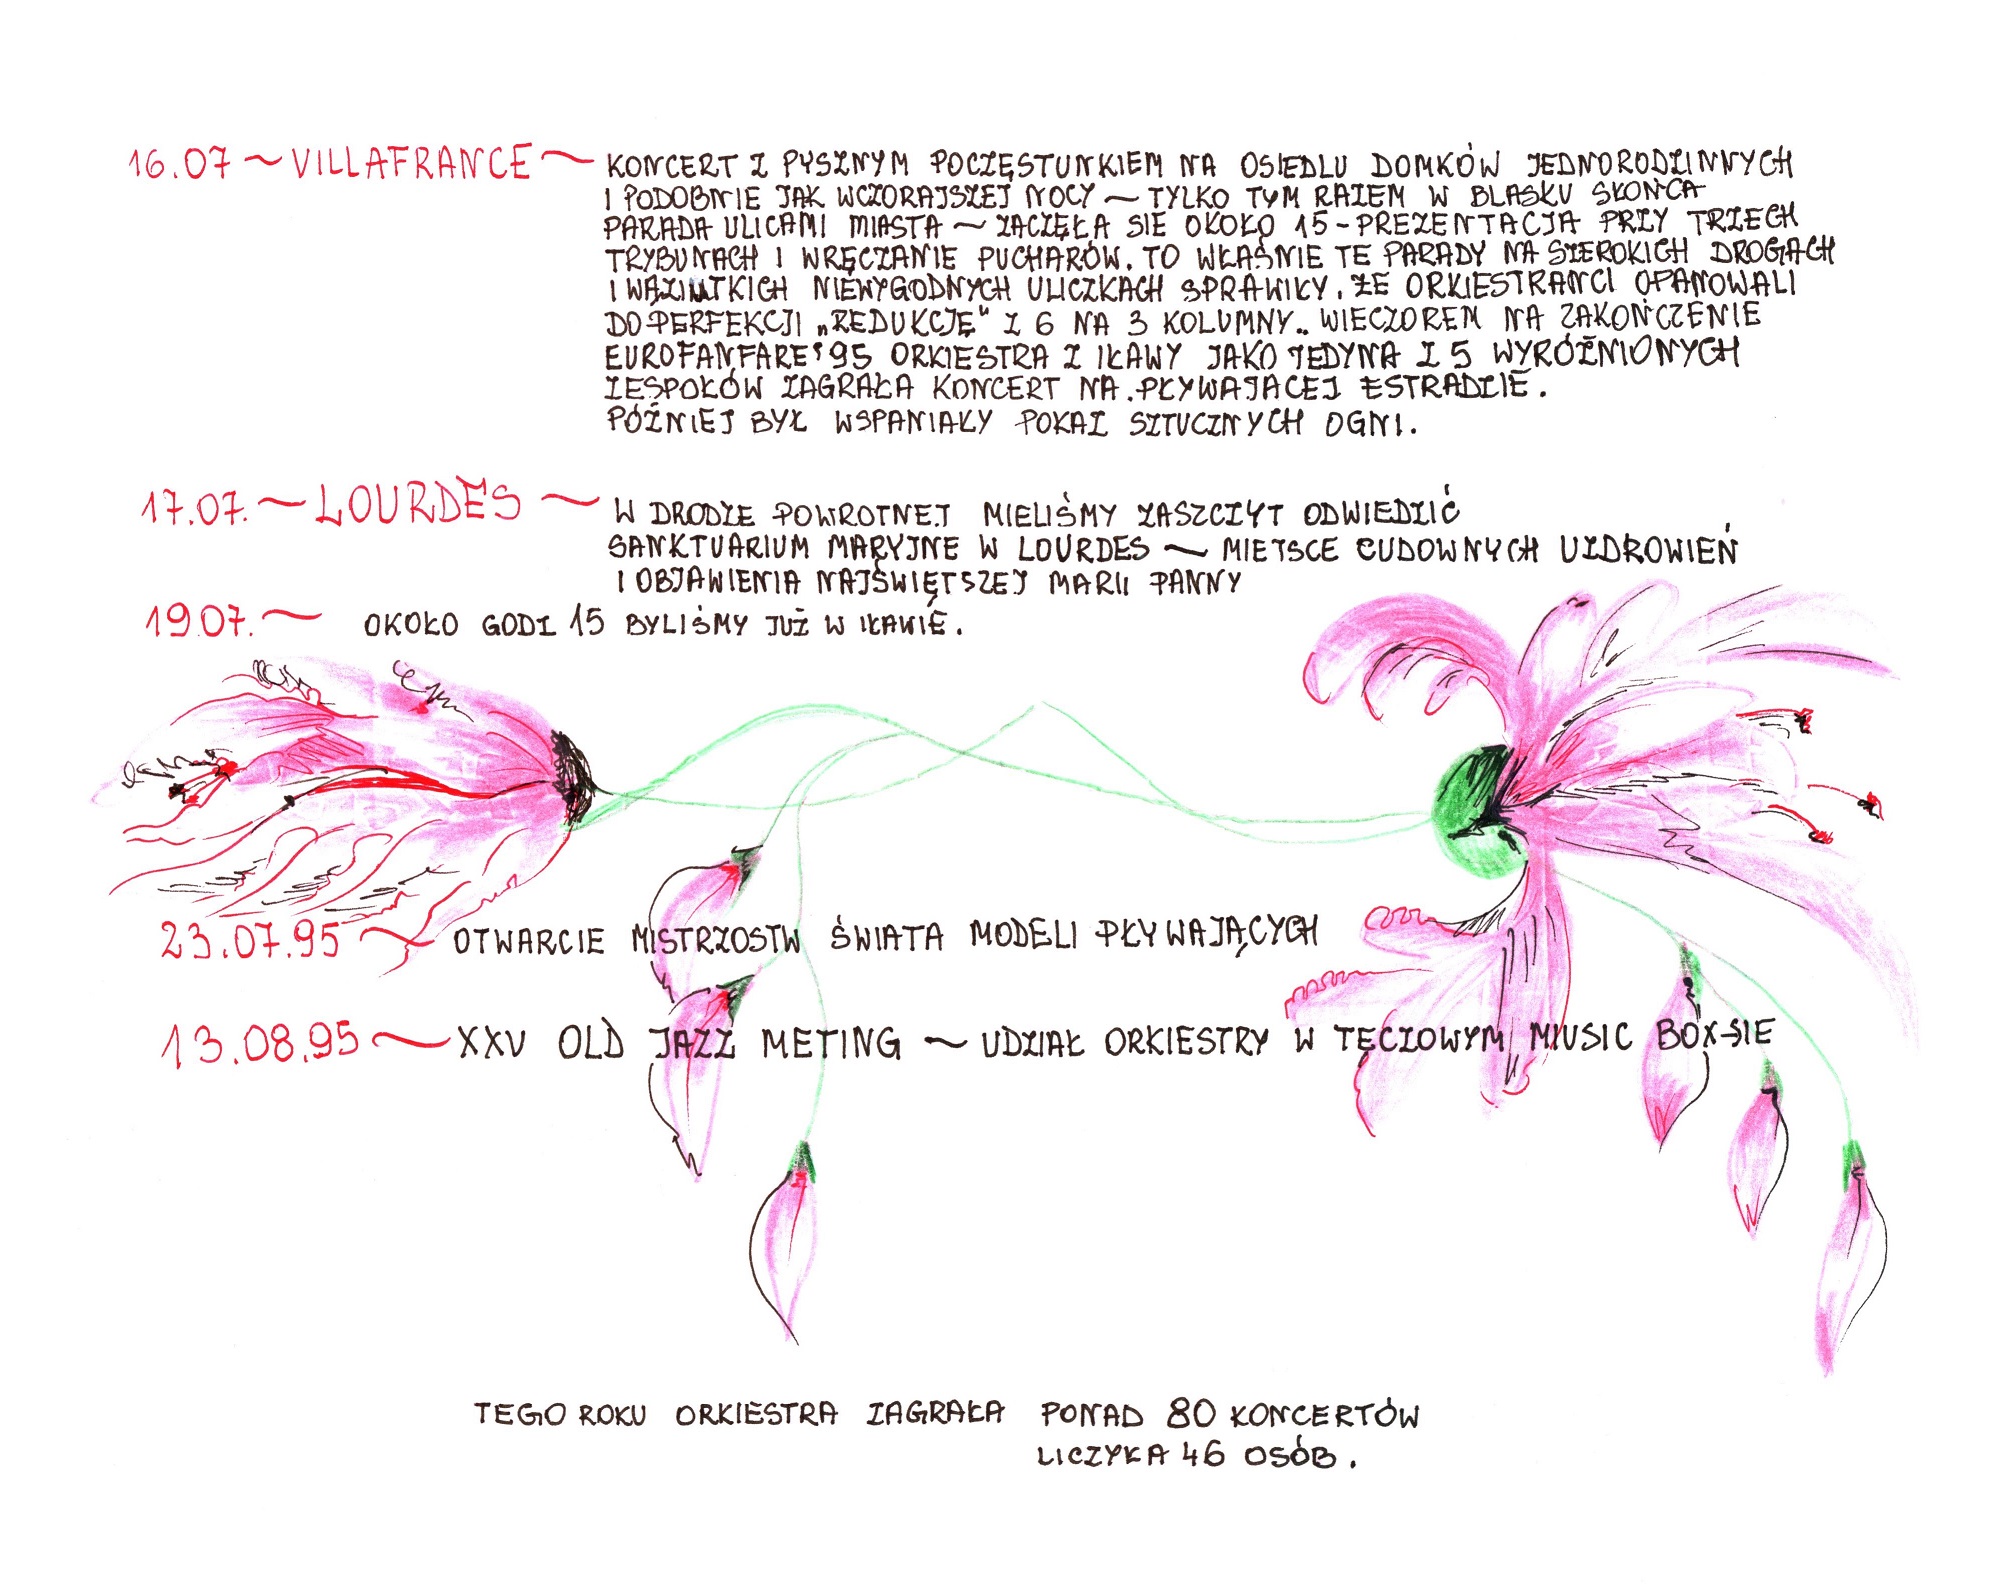 16.07 ~ VILLAFRANCE ~ KONCERT Z PYSZNYM POCZĘSTUNKIEM NA OSIEDLU DOMKÓW JEDNORODZINNYCH
I PODOBNIE JAK WCZORAJSZEJ NOCY ~ TYLKO TYM RAZEM W BLASKU SŁOŃCA
PARADA ULICAMI MIASTA ~ ZACZĘŁA SIE OKOŁO 15 - PREZENTACJA PRZY TRZECH
TRYBUNACH I WRĘCZANIE PUCHARÓW. TO WŁAŚNIE TE PARADY NA SZEROKICH DROGACH
I WĄZIUTKICH NIEWYGODNYCH ULICZKACH SPRAWIŁY, ŻE ORKIESTRANCI OPANOWALI
DO PERFEKCJI „REDUKCJĘ" Z 6 NA 3 KOLUMNY.. WIECZOREM NA ZAKOŃCZENIE
EUROFANFARE'95 ORKIESTRA Z IŁAWY JAKO JEDYNA Z 5 WYRÓŻNIONYCH
ZESPOŁÓW ZAGRAŁA KONCERT NA PŁYWAJĄCEJ ESTRADZIE.
PÓŹNIEJ BYŁ WSPANIAŁY POKAZ SZTUCZNYCH OGNI.
17.07. ~ LOURDES ~ W DRODZE POWROTNEJ MIELIŚMY ZASZCZYT ODWIEDZIĆ
SANKTUARIUM MARYJNE W LOURDES ~ MIEJSCE CUDOWNYCH UZDROWIEŃ
I OBJAWIENIA NAJŚWIĘTSZEJ MARII PANNY
19.07. ~ OKOŁO GODZ 15 BYLIŚMY JUŻ W IŁAWIE.
23.07.95 ~ OTWARCIE MISTRZOSTW ŚWIATA MODELI PŁYWAJĄCYCH
13.08.95 ~ XXV OLD JAZZ METING ~ UDZIAŁ ORKIESTRY W TĘCZOWYM MIUSIC BOX-SIE
TEGO ROKU ORKIESTRA ZAGRAŁA PONAD 80 KONCERTÓW
LICZYŁA 46 OSÓB.